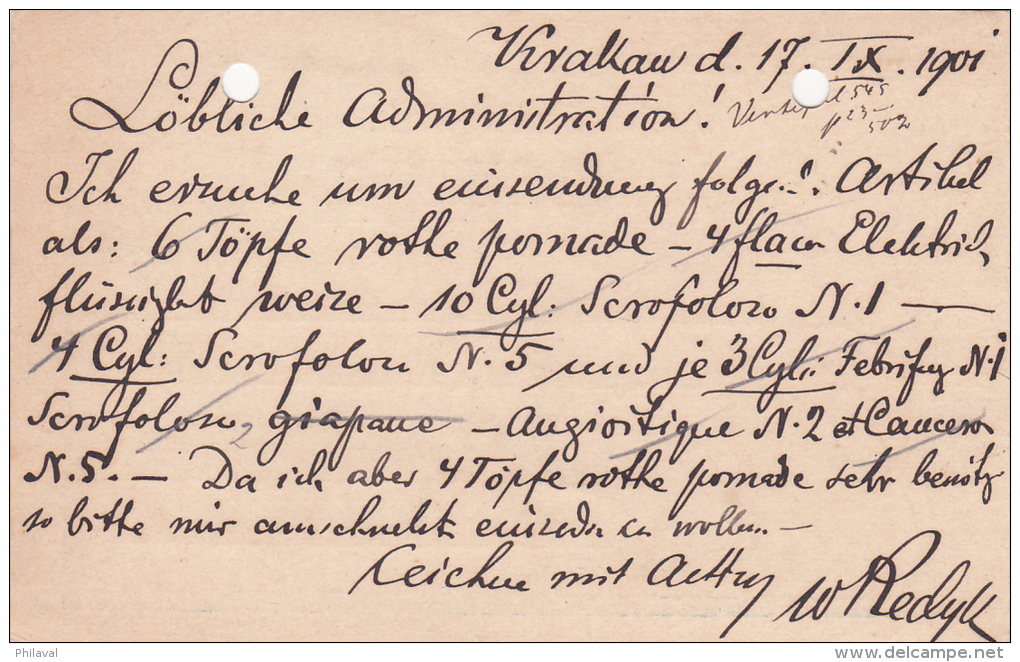 Krakau d. 17. IX. 1901
Löbliche Administration!
545
p 23-
502
Ich ersuche um einsendung folge..! Artikel
als: 6 Töpfe rothe pomade – 4 flacn Elektrich
flüssigkeit weize – 10 Cyl: Scrofoloso N. 1 —
4 Cyl: Scrofoloso N. 5 und je 3 Cyl: Febrifug N. 1
Scrofoloso giapane – Angioitique N. 2 et Canceroso
N. 5. – Da ich aber 4 Töpfe rothe pomade sehr benötg
so bitte mir amschnelst einsedn zu wollen. –
Zeichne mit Achtug
W Redyk
Philaval
www.delcampe.net